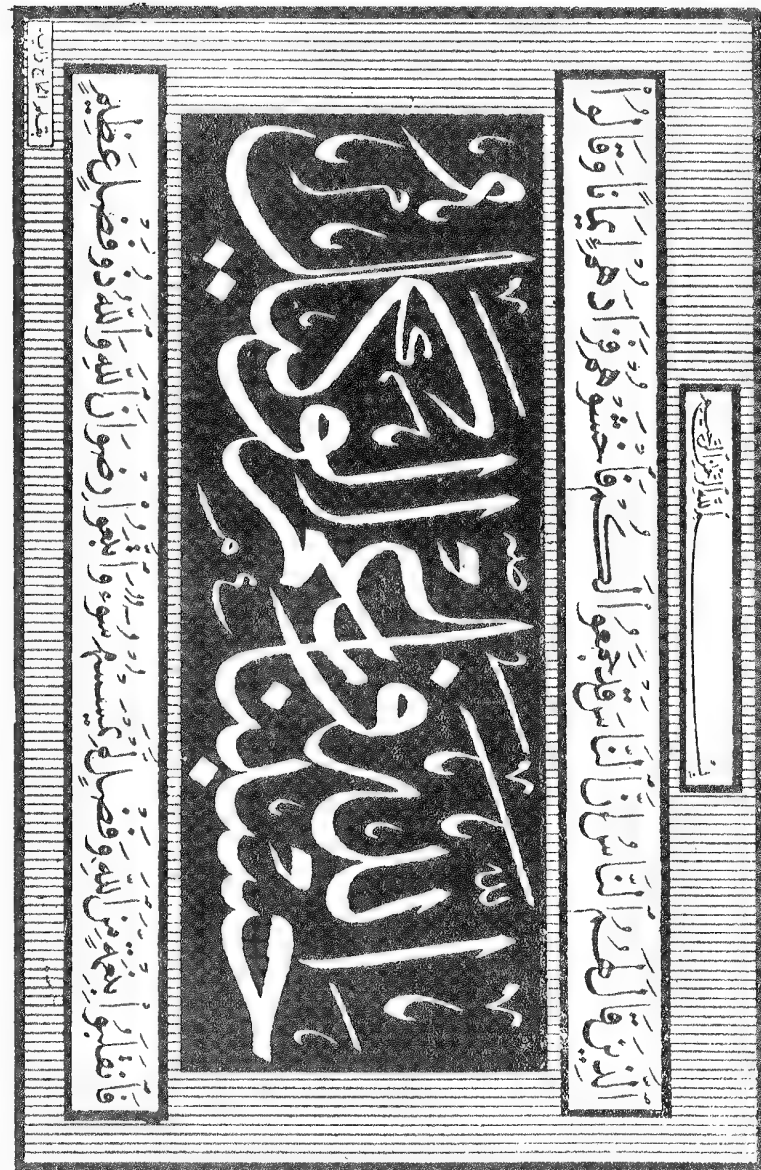 بسم الله الرحمن الرحيم
الَّذِينَ قَالَ لَهُمُ النَّاسُ إِنَّ النَّاسَ قَدْ جَمَعُوا لَكُمْ فَاخْشَوْهُمْ فَزَادَهُمْ إِيمَانًا وَقَالُوا
حَسْبُنَا اللَّهُ وَنِعْمَ الْوَكِيلُ
فَانْقَلَبُوا بِنِعْمَةٍ مِنَ اللَّهِ وَفَضْلٍ لَمْ يَمْسَسْهُمْ سُوءٌ وَاتَّبَعُوا رِضْوَانَ اللَّهِ وَاللَّهُ ذُو فَضْلٍ عَظِيمٍ